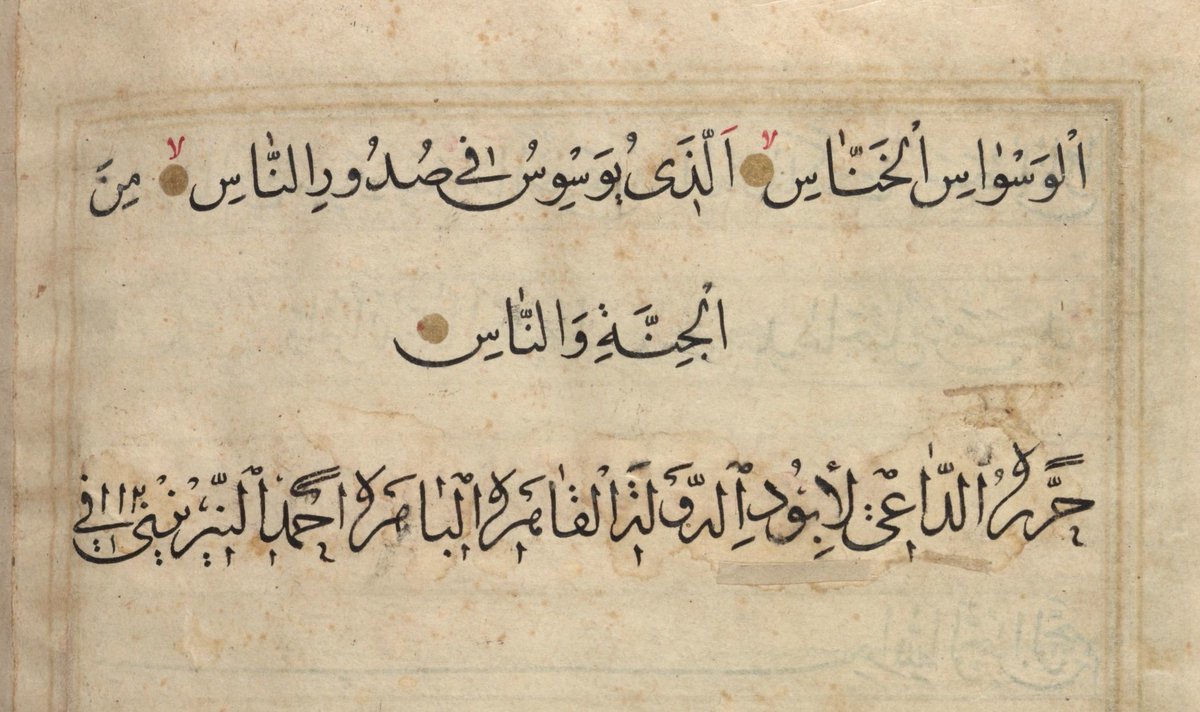 اَلْوَسْوٰاسِ اَلْخَنّٰاسِ لا اَلَّذَى يُوَسْوِسُ فٖى صُدُورِ النّٰاسِ لا مِنَ
اَلْجِنَّةِ وَالنّٰاسِ
حَرَّرَهُ الدّٰاعِى لِأُبُودِ الدَّوْلَةِ الْقٰاهِرَةِ الْبٰاهِرَةِ احْمَدُ النَّيْرِيْزِىُّ فى ١١٢